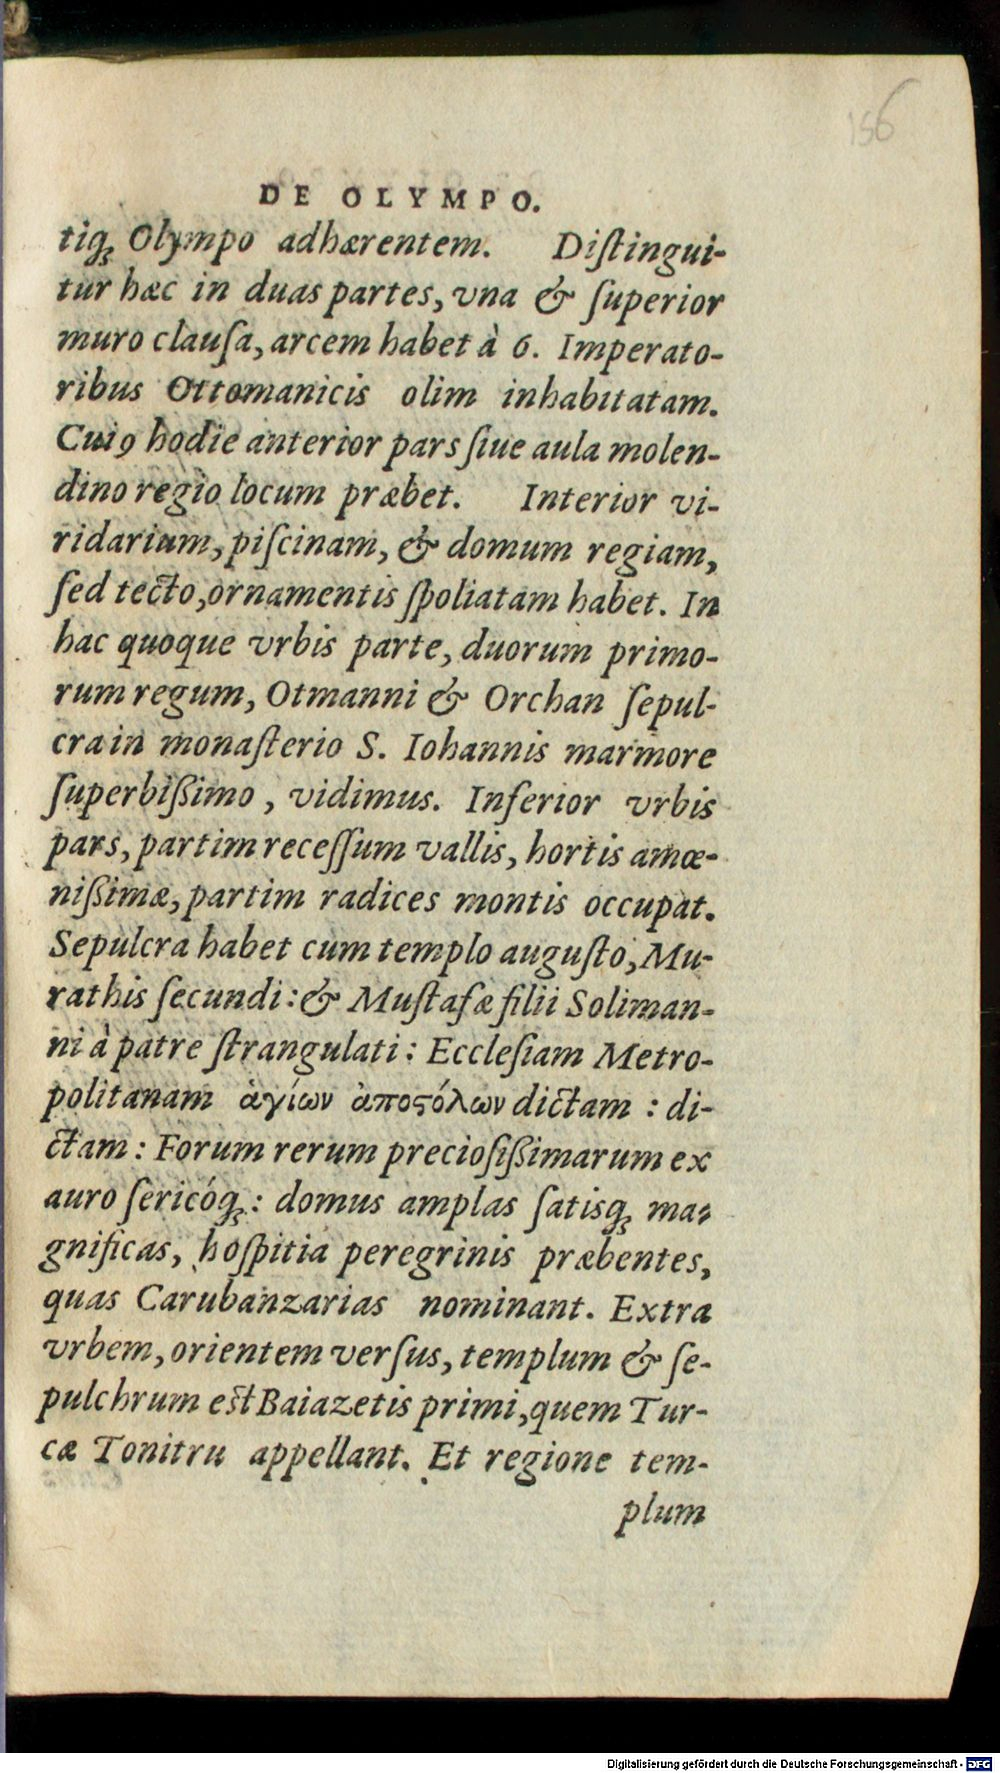 156
DE OLYMPO.
tiqꝫ Olympo adhærentem. Diſtingui-
tur hæc in duas partes, vna & ſuperior
muro clauſa, arcem habet à 6. Imperato-
ribus Ottomanicis olim inhabitatam.
Cuiꝰ hodie anterior pars ſiue aula molen-
dino regio locum præbet. Interior vi-
ridarium, piſcinam, & domum regiam,
ſed tecto, ornamentis ſpoliatam habet. In
hac quoque vrbis parte, duorum primo-
rum regum, Otmanni & Orchan ſepul-
cra in monaſterio S. Iohannis marmore
ſuperbißimo, vidimus. Inferior vrbis
pars, partim receſſum vallis, hortis amœ-
nißimæ, partim radices montis occupat.
Sepulcra habet cum templo auguſto, Mu-
rathis ſecundi: & Muſtafæ filii Soliman-
ni à patre ſtrangulati: Eccleſiam Metro-
politanam ἁγίων ἀποϛόλων dictam : di-
ctam: Forum rerum precioſißimarum ex
auro ſericóqꝫ: domus amplas ſatisqꝫ ma-
gnificas, hoſpitia peregrinis præbentes,
quas Carubanzarias nominant. Extra
vrbem, orientem verſus, templum & ſe-
pulchrum eſt Baiazetis primi, quem Tur-
cæ Tonitru appellant. Et regione tem-
plum
Digitalisierung gefördert durch die Deutsche Forschungsgemeinschaft - DFG